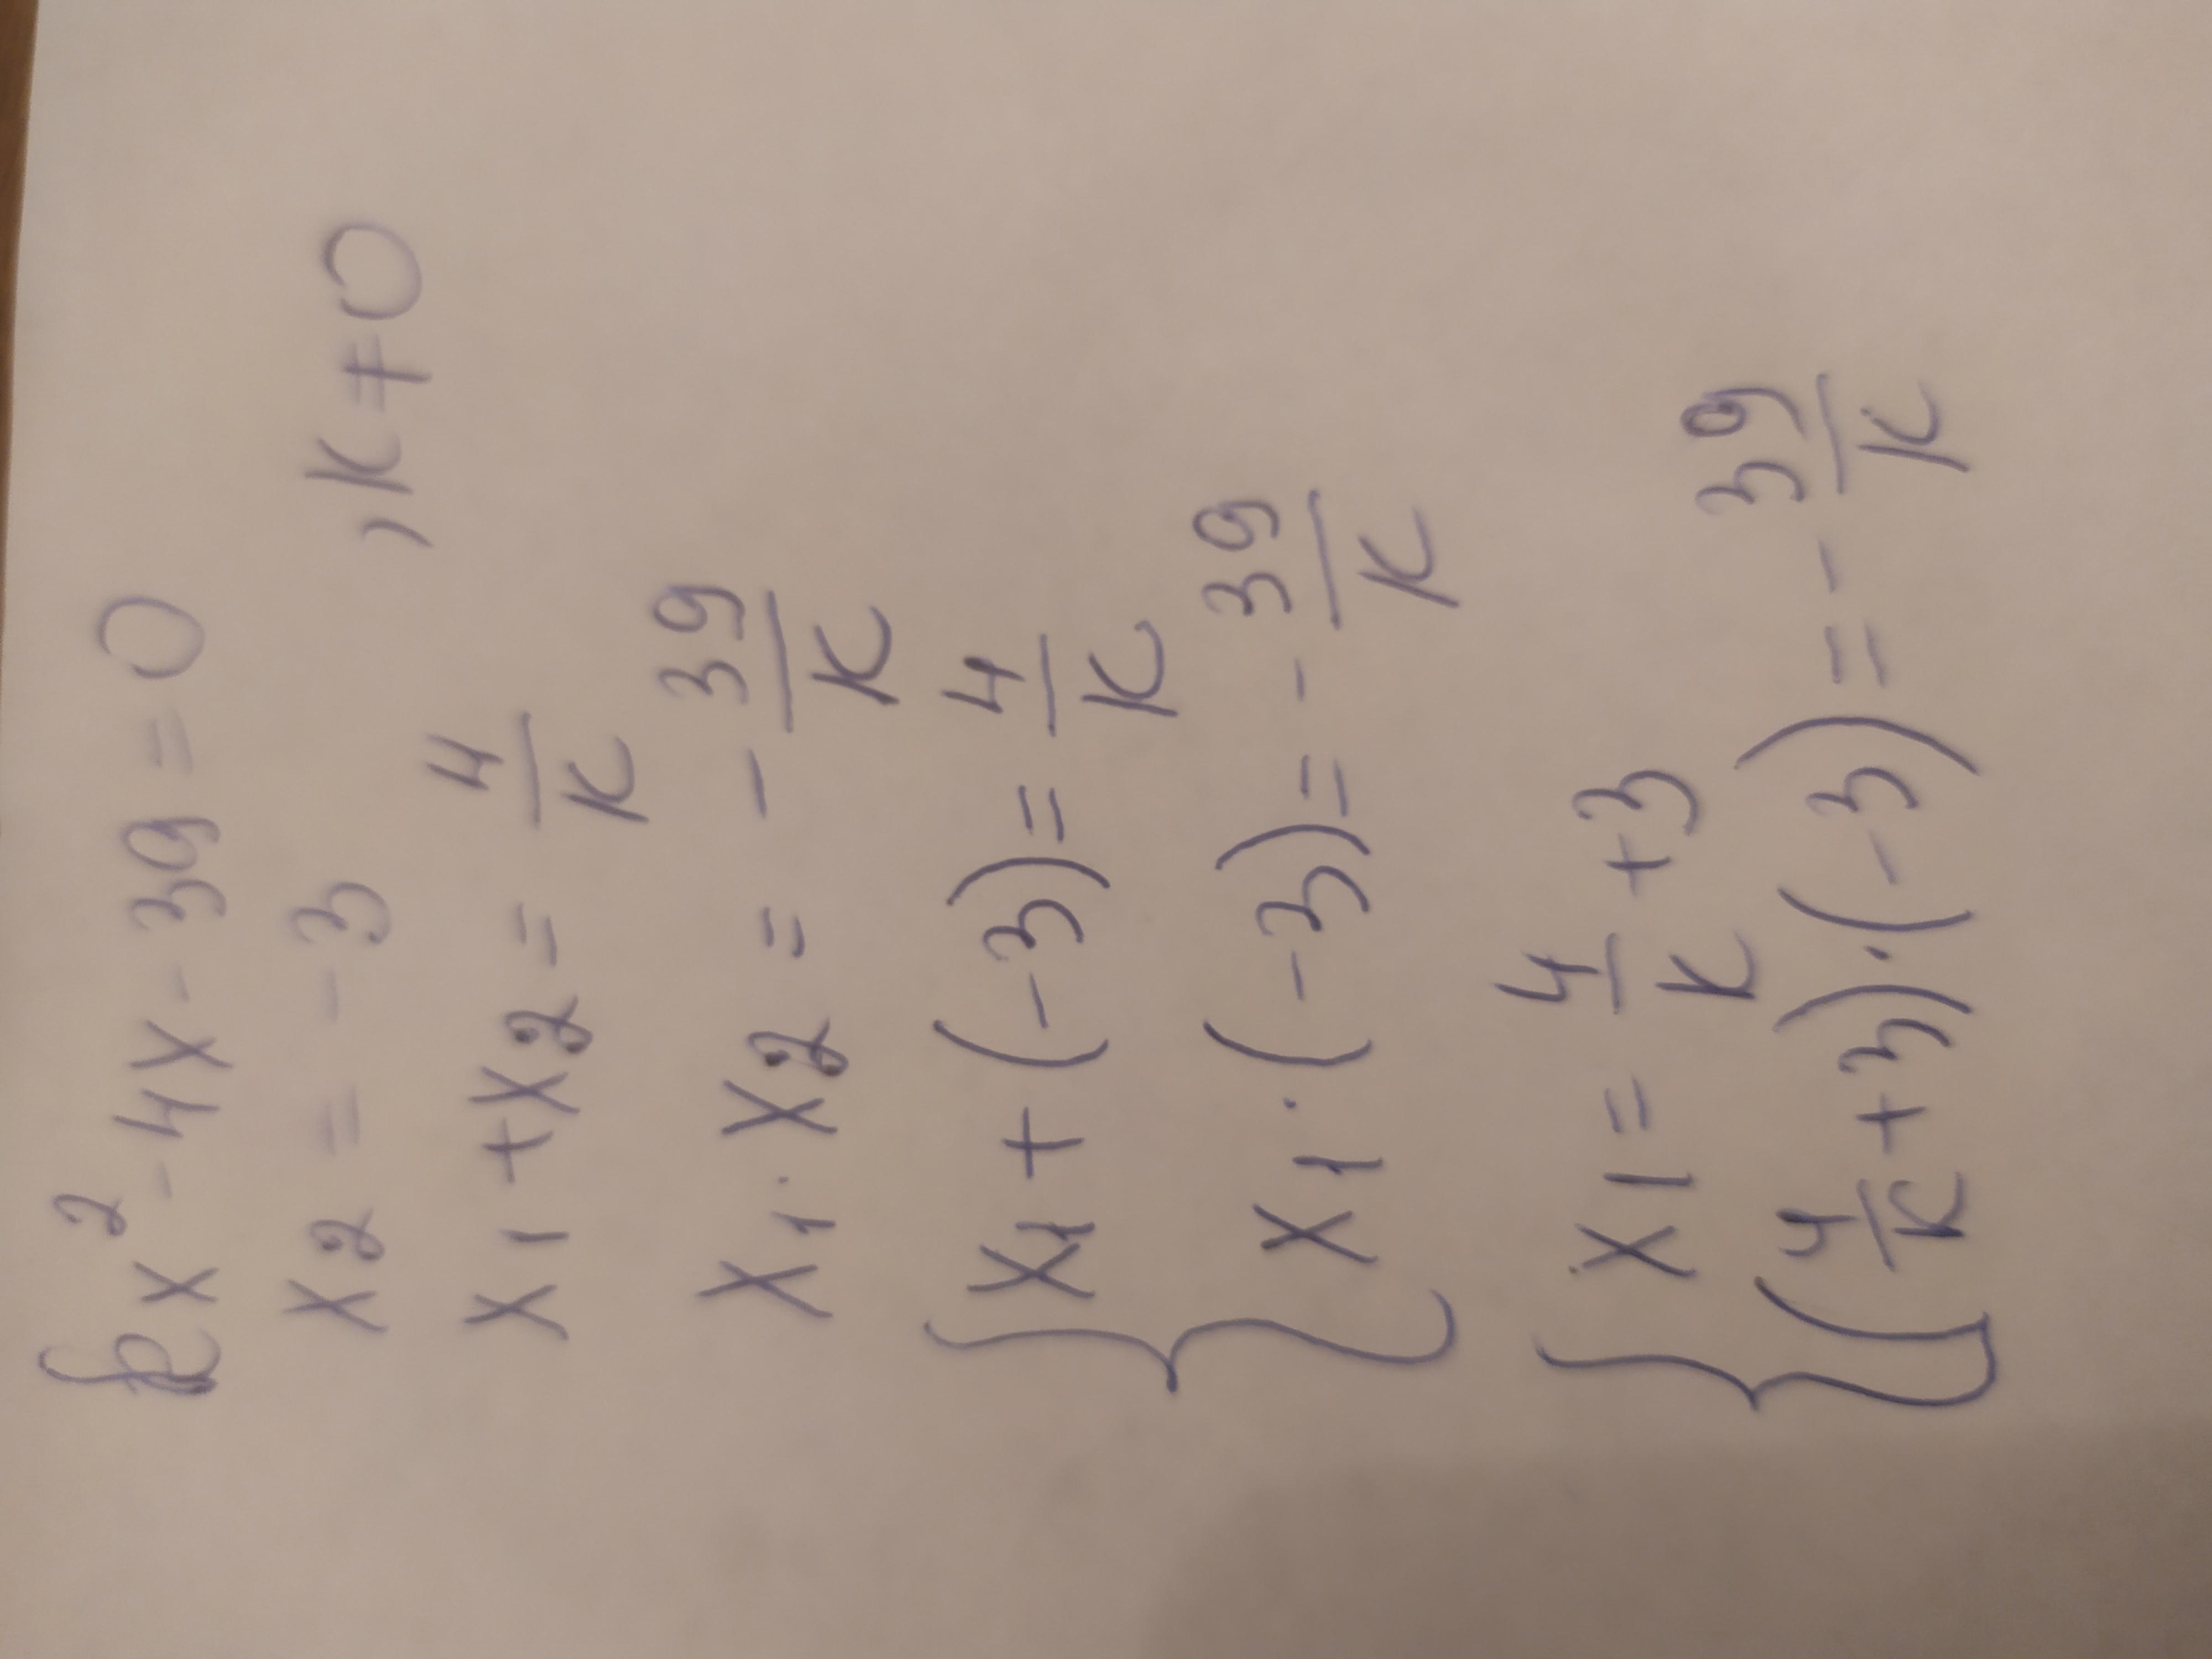 kx² - 4x - 39 = 0
x₂ = -3 , k ≠ 0
x₁ + x₂ = 4/k
x₁ · x₂ = - 39/k
{ x₁ + (-3) = 4/k
x₁ · (-3) = - 39/k
{ x₁ = 4/k + 3
(4/k + 3) · (-3) = - 39/k